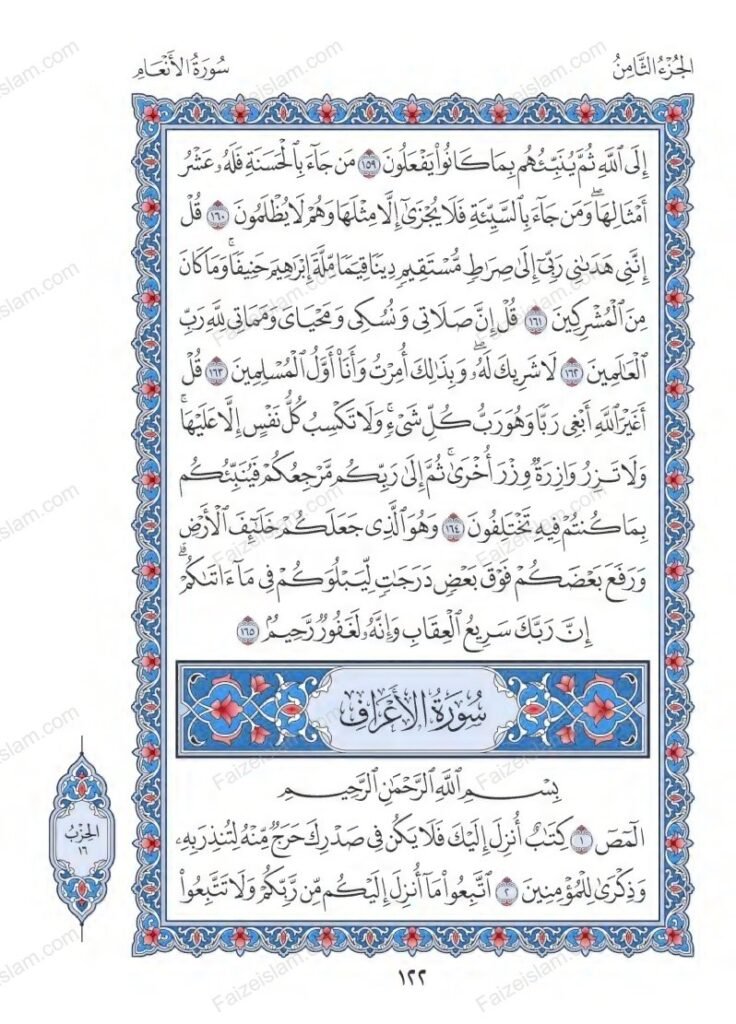 الجُزْءُ الثَّامِنُ
سُورَةُ الأَنْعَامِ
إِلَى ٱللَّهِ ثُمَّ يُنَبِّئُهُم بِمَا كَانُوا۟ يَفْعَلُونَ ١٥٩ مَن جَآءَ بِٱلْحَسَنَةِ فَلَهُۥ عَشْرُ
أَمْثَالِهَا ۖ وَمَن جَآءَ بِٱلسَّيِّئَةِ فَلَا يُجْزَىٰٓ إِلَّا مِثْلَهَا وَهُمْ لَا يُظْلَمُونَ ١٦٠ قُلْ
إِنَّنِى هَدَىٰنِى رَبِّىٓ إِلَىٰ صِرَٰطٍ مُّسْتَقِيمٍ دِينًا قِيَمًا مِّلَّةَ إِبْرَٰهِيمَ حَنِيفًا ۚ وَمَا كَانَ
مِنَ ٱلْمُشْرِكِينَ ١٦١ قُلْ إِنَّ صَلَاتِى وَنُسُكِى وَمَحْيَاىَ وَمَمَاتِى لِلَّهِ رَبِّ
ٱلْعَٰلَمِينَ ١٦٢ لَا شَرِيكَ لَهُۥ ۖ وَبِذَٰلِكَ أُمِرْتُ وَأَنَا۠ أَوَّلُ ٱلْمُسْلِمِينَ ١٦٣ قُلْ
أَغَيْرَ ٱللَّهِ أَبْغِى رَبًّا وَهُوَ رَبُّ كُلِّ شَىْءٍ ۚ وَلَا تَكْسِبُ كُلُّ نَفْسٍ إِلَّا عَلَيْهَا ۚ
وَلَا تَزِرُ وَازِرَةٌ وِزْرَ أُخْرَىٰ ۚ ثُمَّ إِلَىٰ رَبِّكُم مَّرْجِعُكُمْ فَيُنَبِّئُكُم
بِمَا كُنتُمْ فِيهِ تَخْتَلِفُونَ ١٦٤ وَهُوَ ٱلَّذِى جَعَلَكُمْ خَلَٰٓئِفَ ٱلْأَرْضِ
وَرَفَعَ بَعْضَكُمْ فَوْقَ بَعْضٍ دَرَجَٰتٍ لِّيَبْلُوَكُمْ فِى مَآ ءَاتَىٰكُمْ ۗ
إِنَّ رَبَّكَ سَرِيعُ ٱلْعِقَابِ وَإِنَّهُۥ لَغَفُورٌ رَّحِيمٌۢ ١٦٥
سُورَةُ الأَعْرَافِ
بِسْمِ ٱللَّهِ ٱلرَّحْمَٰنِ ٱلرَّحِيمِ
الٓمٓصٓ ١ كِتَٰبٌ أُنزِلَ إِلَيْكَ فَلَا يَكُن فِى صَدْرِكَ حَرَجٌ مِّنْهُ لِتُنذِرَ بِهِۦ
وَذِكْرَىٰ لِلْمُؤْمِنِينَ ٢ ٱتَّبِعُوا۟ مَآ أُنزِلَ إِلَيْكُم مِّن رَّبِّكُمْ وَلَا تَتَّبِعُوا۟
الحِزْبُ
١٦
١٢٢
Faizeislam.com